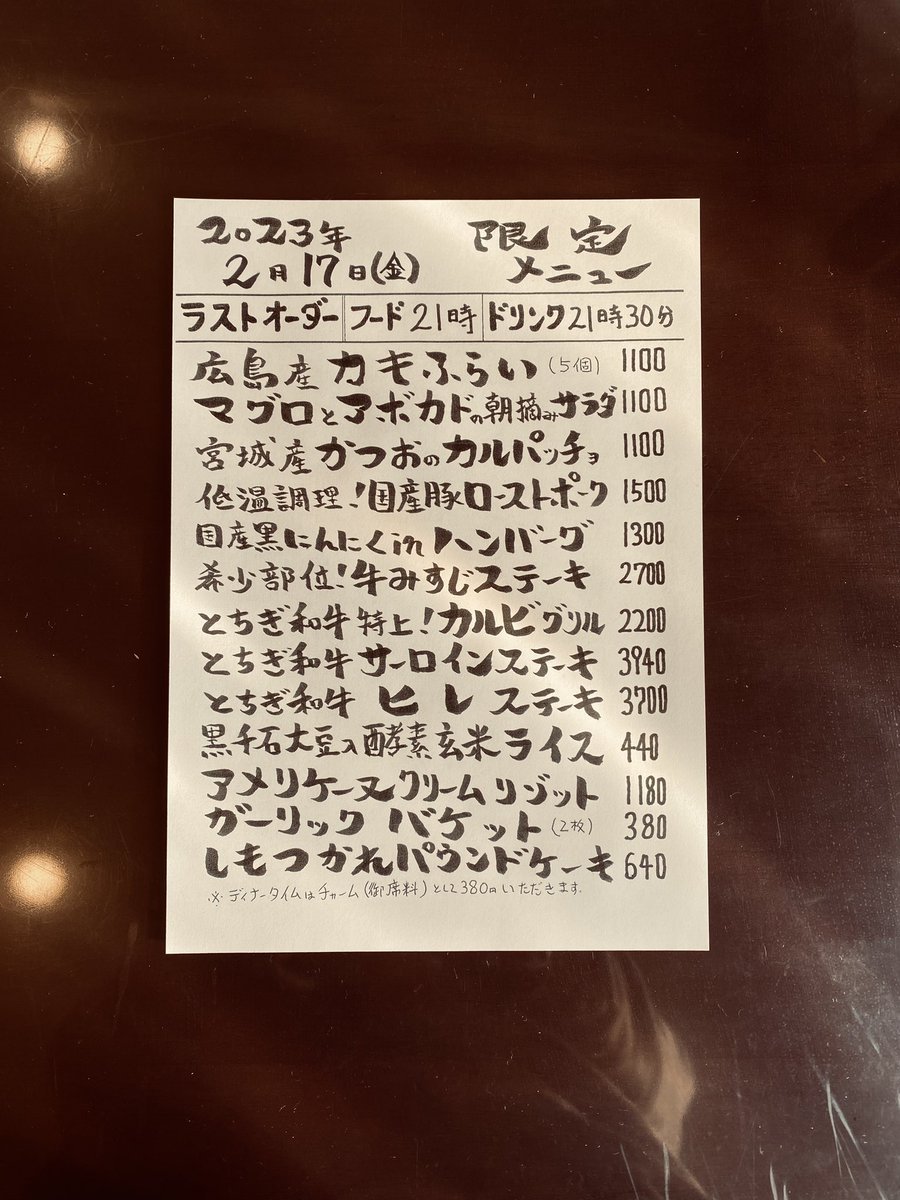 2023年 限定
2月17日(金) メニュー
ラストオーダー フード21時 ドリンク21時30分
広島産カキふらい(5個) 1100
マグロとアボカドの朝摘みサラダ 1100
宮城産かつおのカルパッチョ 1100
低温調理!国産豚ローストポーク 1500
国産黒にんにくinハンバーグ 1300
希少部位!牛みすじステーキ 2700
とちぎ和牛特上!カルビグリル 2200
とちぎ和牛サーロインステーキ 3940
とちぎ和牛ヒレステーキ 3700
黒千石大豆入酵素玄米ライス 440
アメリケーヌクリームリゾット 1180
ガーリックバケット(2枚) 380
しもつかれパウンドケーキ 640
※ディナータイムはチャーム(御席料)として380円いただきます。